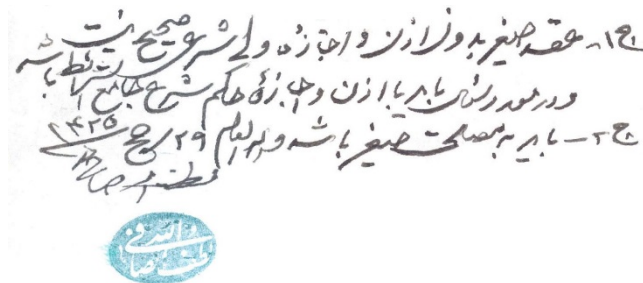 ج۱- عقد صغیر بدون اذن و اجازه ولی شرعی صحیح نیست
و در مورد باید با اذن و اجازهٔ حاکم شرع جامع الشرائط باشد
ج۲- باید به مصلحت صغیر باشد والله العالم ۲۹ رجب ۱۴۲۵
لطف الله صافی
لطف الله صافی